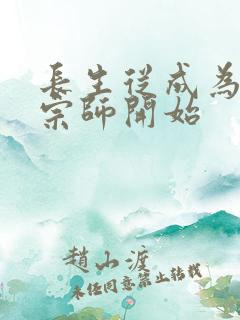 長生從成為
宗師開始
趙山渡
未經同意禁止轉載